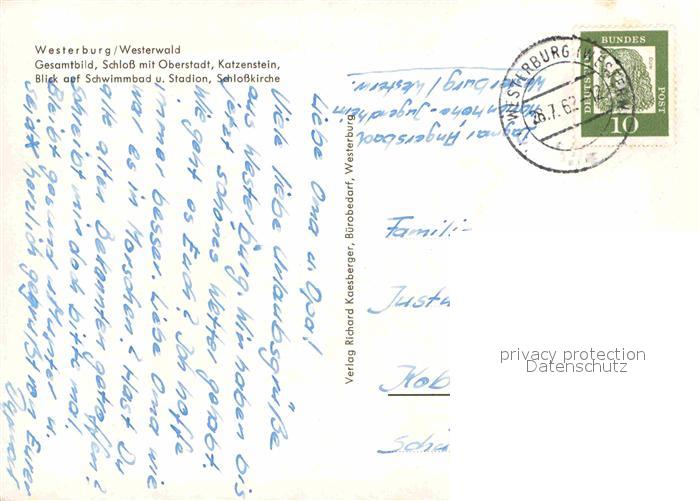 Westerburg/Westerwald
Gesamtbild, Schloß mit Oberstadt, Katzenstein,
Blick auf Schwimmbad u. Stadion, Schloßkirche
Liebe Oma u. Opa!
Viele liebe Urlaubsgrüße
aus Westerburg. Wir haben bis
jetzt schönes Wetter gehabt.
Wie geht es Euch? Ich hoffe
immer besser. Liebe Oma wie
war es in Morschen? Hast Du
alle alten Bekannten getroffen?
Schreibt mir doch bitte mal.
Bleibt gesund u. munter u.
seid herzlich gegrüßt von Eurer
Dagmar
Verlag Richard Kaesberger, Bürobedarf, Westerburg
Dagmar Angersbach
Jugendheim
Westerburg / Western.
WESTERBURG (WESTERW)
26.7.62
DEUTSCHE
BUNDES
POST
10
Famili
Justu
Kob
Schü
privacy protection
Datenschutz